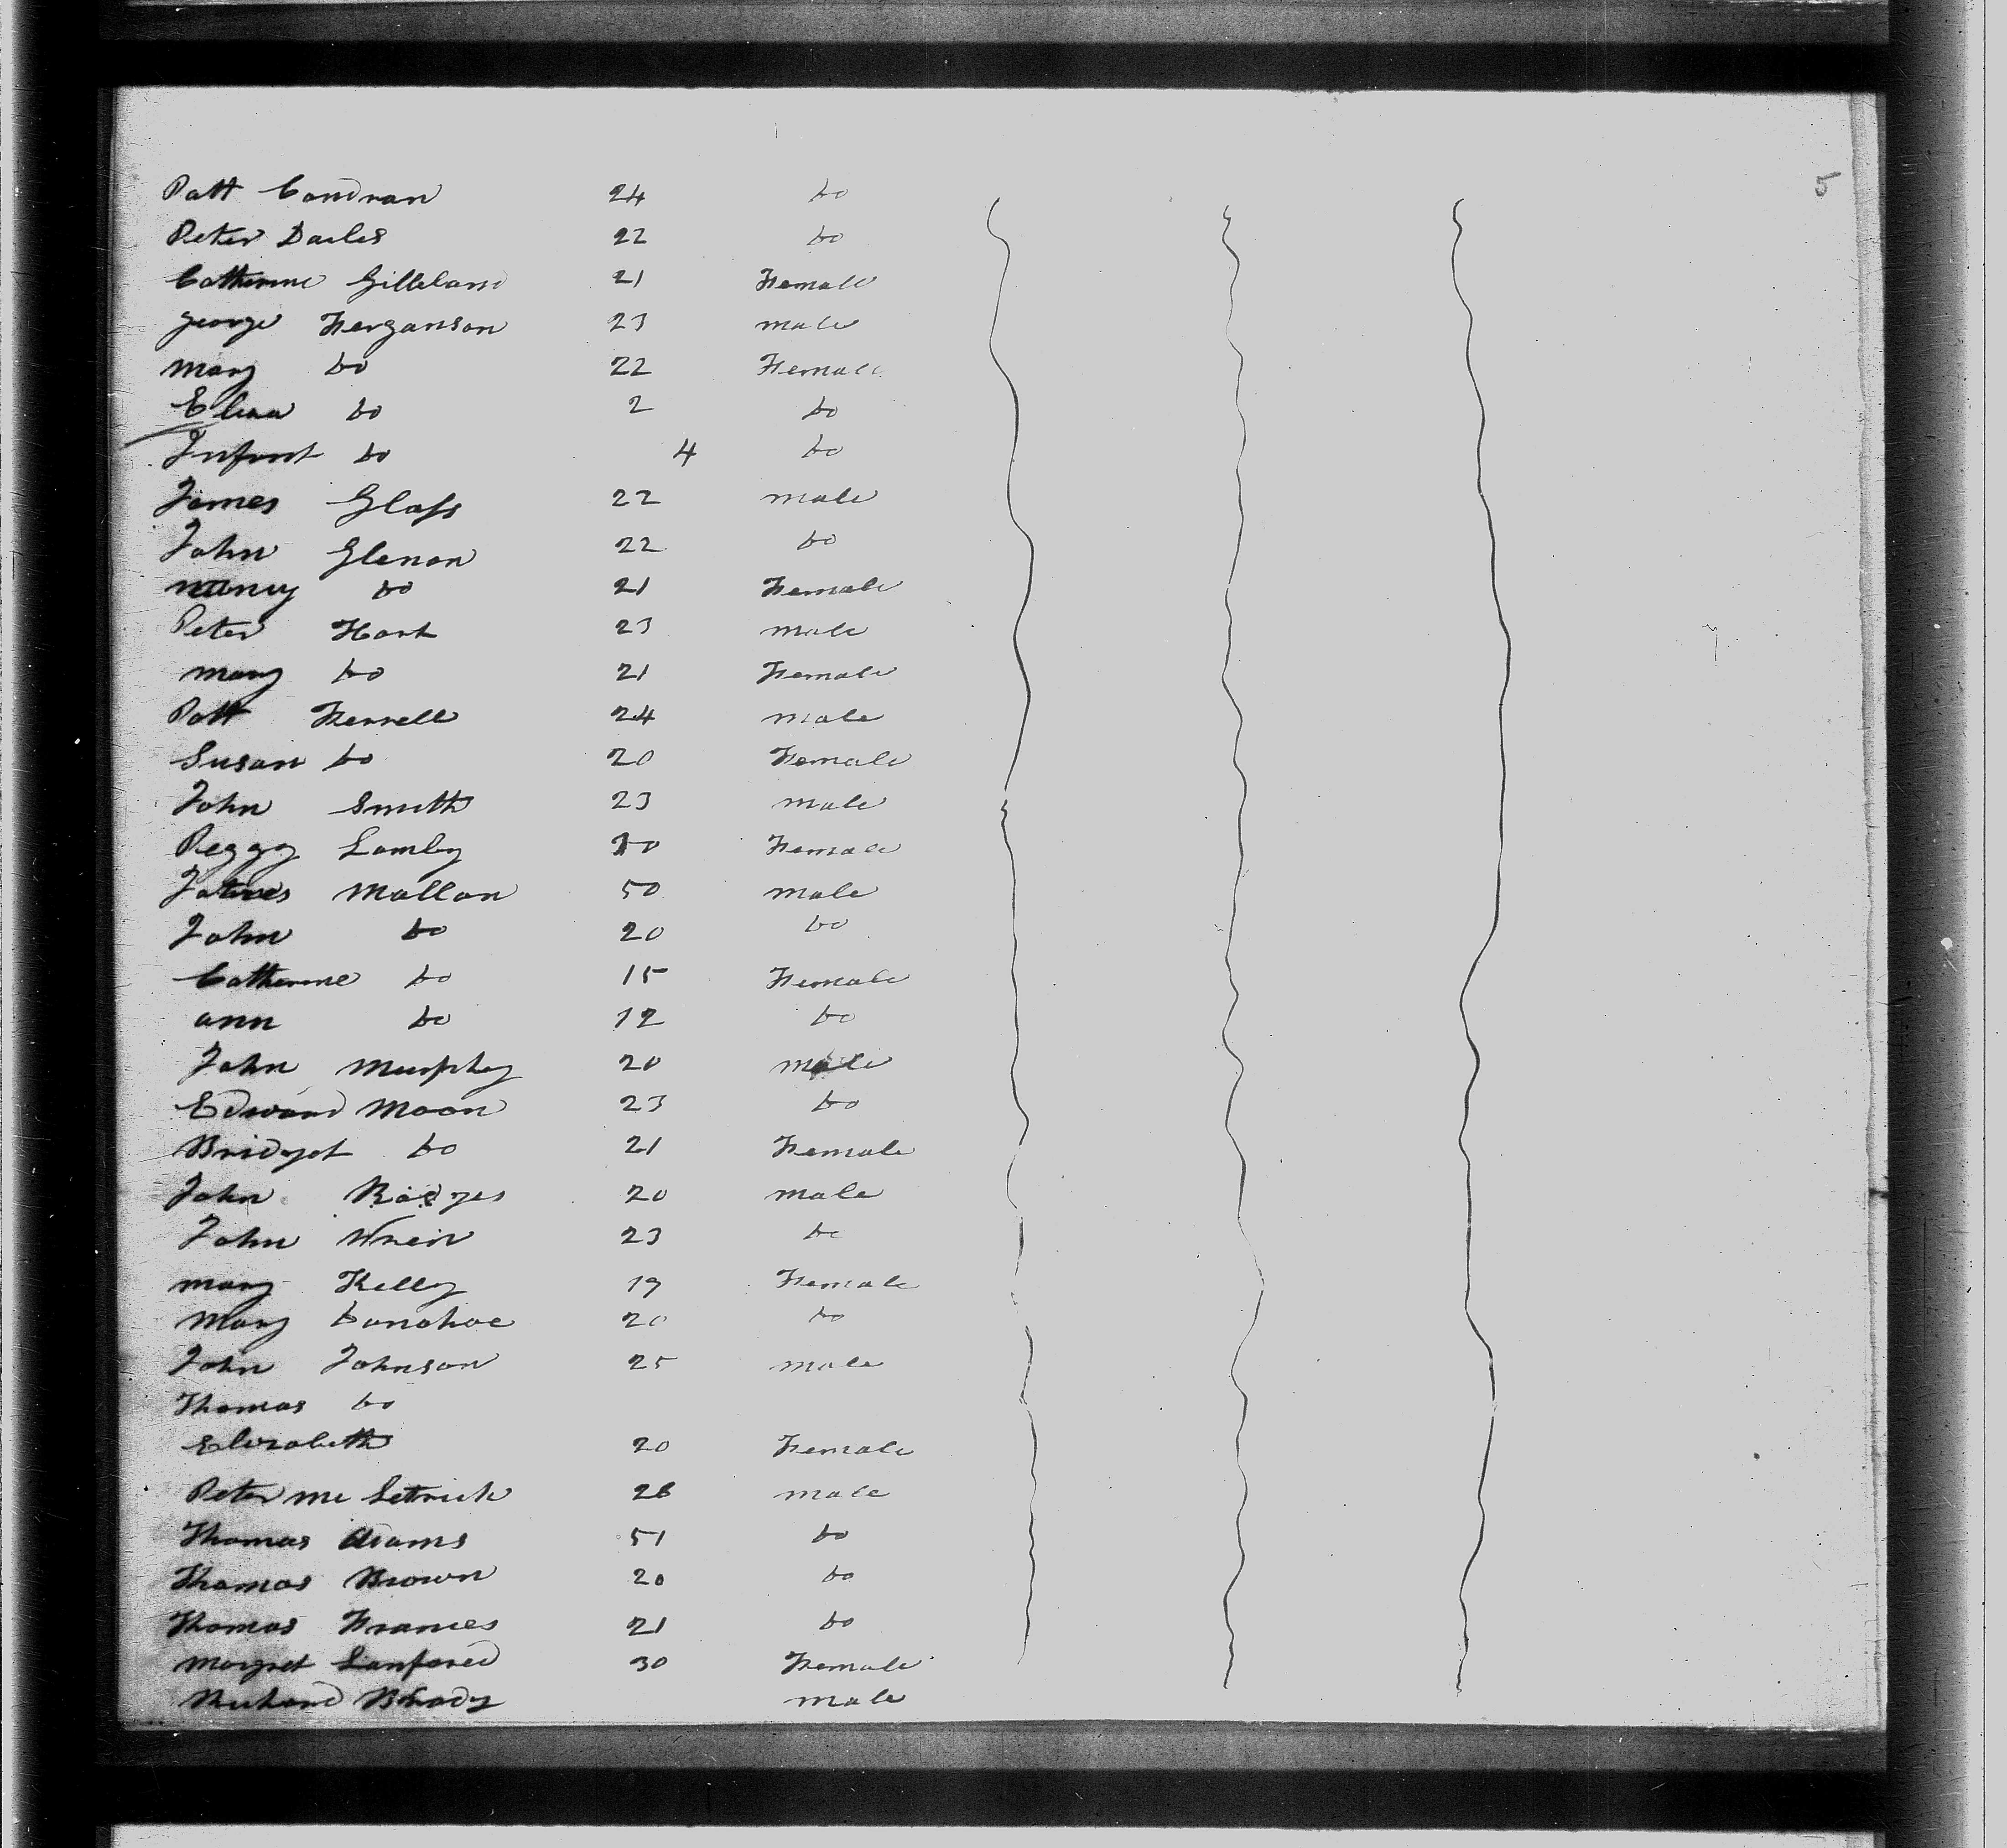 5
Patt Condran 24 do
Peter Dailes 22 do
Catherine Gilleland 21 Female
george Ferganson 23 male
mary do 22 Female
Eliza do 2 do
Infant do 4 do
James Glass 22 male
John Glenon 22 do
nancy do 21 Female
Peter Hart 23 male
mary do 21 Female
Patt Ferrell 24 male
Susan do 20 Female
John Smith 23 male
Peggy Lamby Female
James Mallon 50 male
John do 20 do
Catherine do 15 Female
ann do 12 do
John Murphy 20 male
Edward Moon 23 do
Bridget do 21 Female
John 20 male
John 23 do
mary Kelly 19 Female
Mary Donahoe 20 do
John Johnson 25 male
Thomas do
Elizabeth 20 Female
Peter mc Setrick 26 male
Thomas Adams 51 do
Thomas Brown 20 do
Thomas Frances 21 do
Margret Lanfored 30 Female
Richard Brady male